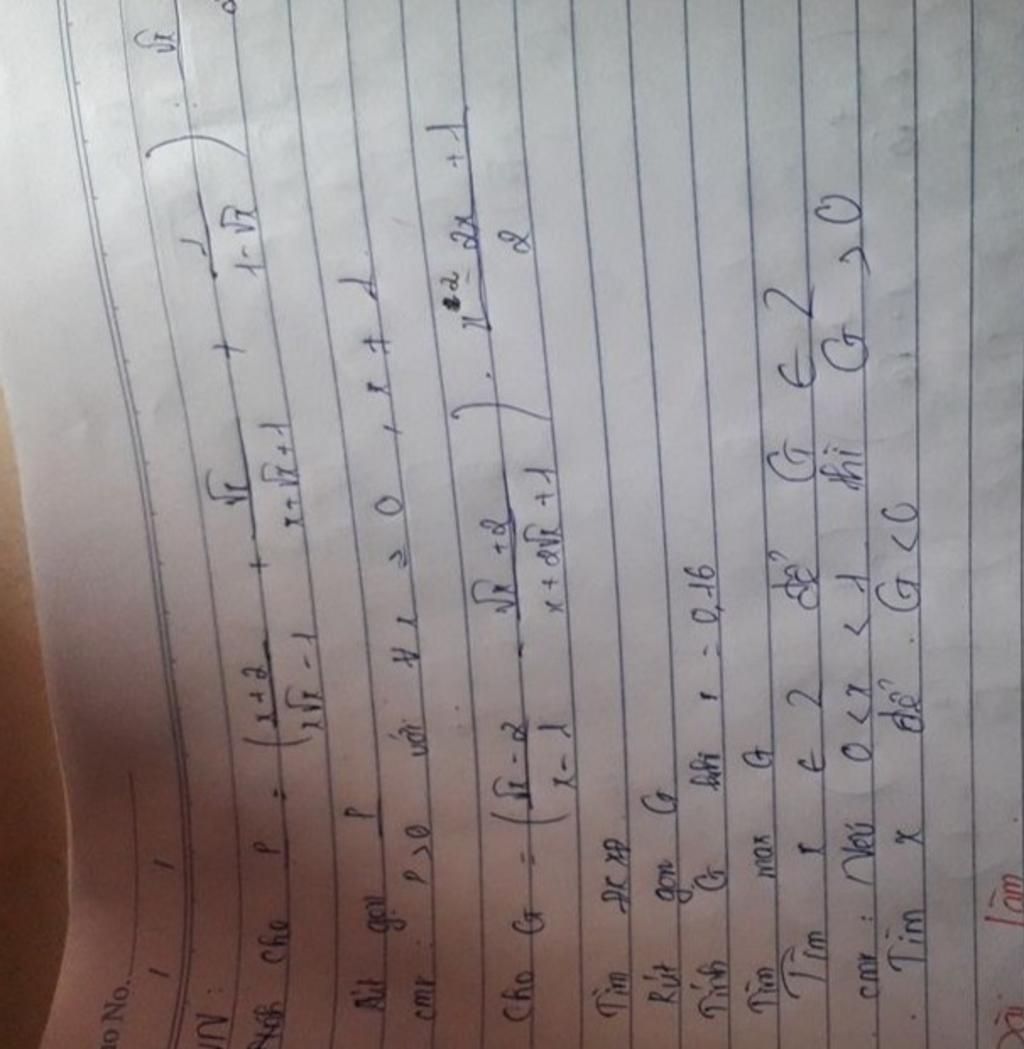 No.
/ /
VN :
Cho P = (x+2/x√x - 1 + √x/x+√x+1 + 1/1-√x) : √x
Rút gọn P
cmr : P > 0 với ∀ x ≥ 0 , x ≠ 1
Cho G = (√x - 2/x - 1 - √x + 2/x + 2√x + 1) . x² - 2x + 1/2
Tìm đkxđ
Rút gọn G
Tính G khi x = 0,16
Tìm max G
Tìm x ∈ Z để G ∈ Z
cmr : Nếu 0 < x < 1 thì G > 0
Tìm x để G < 0
Bài làm